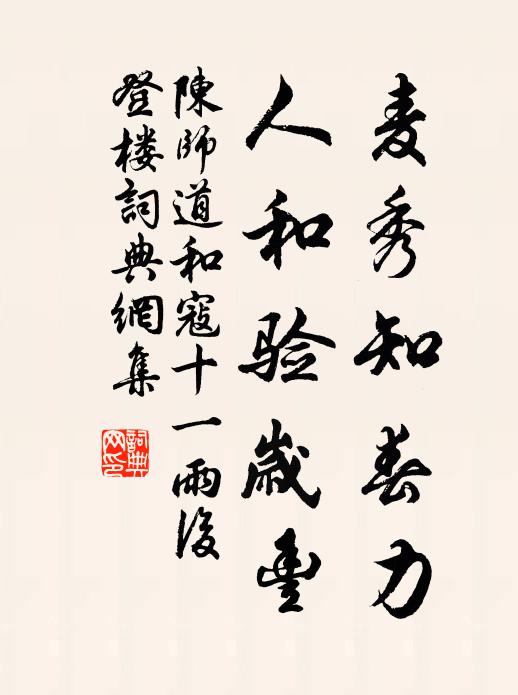 麦秀知春力
人和验歲豊
陳師道和寇十一雨後
登楼詞典網集
詞典网印